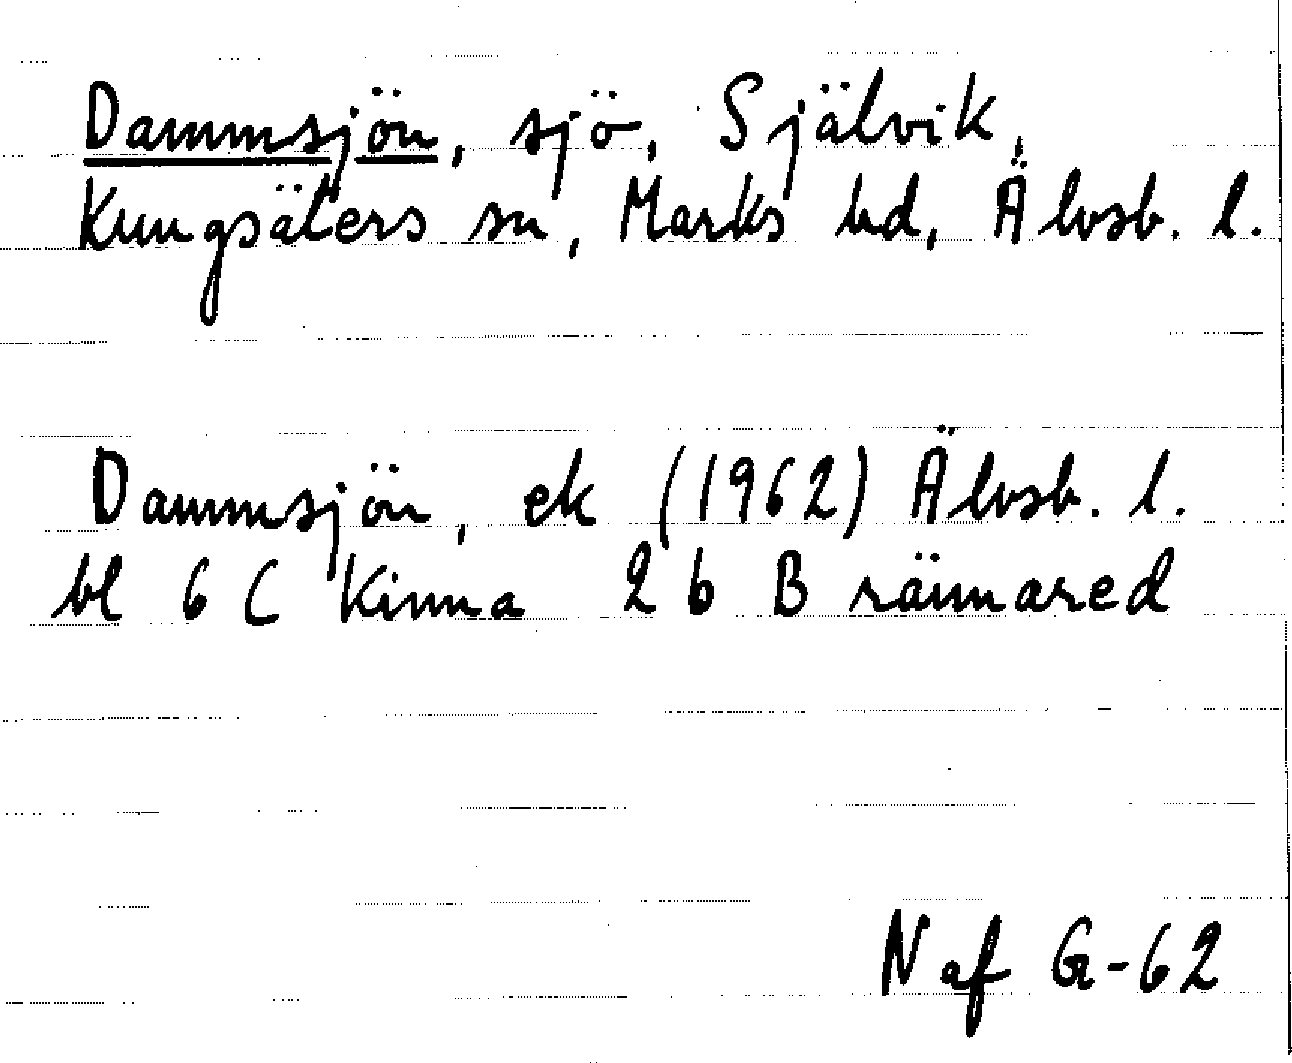 Dammsjön, sjö, Självik,
Kungsäters sn, Marks hd, Älvsb. l.
Dammsjön, ek (1962) Älvsb. l.
bl 6 C Kinna 2 b Brännared
Naf G-62